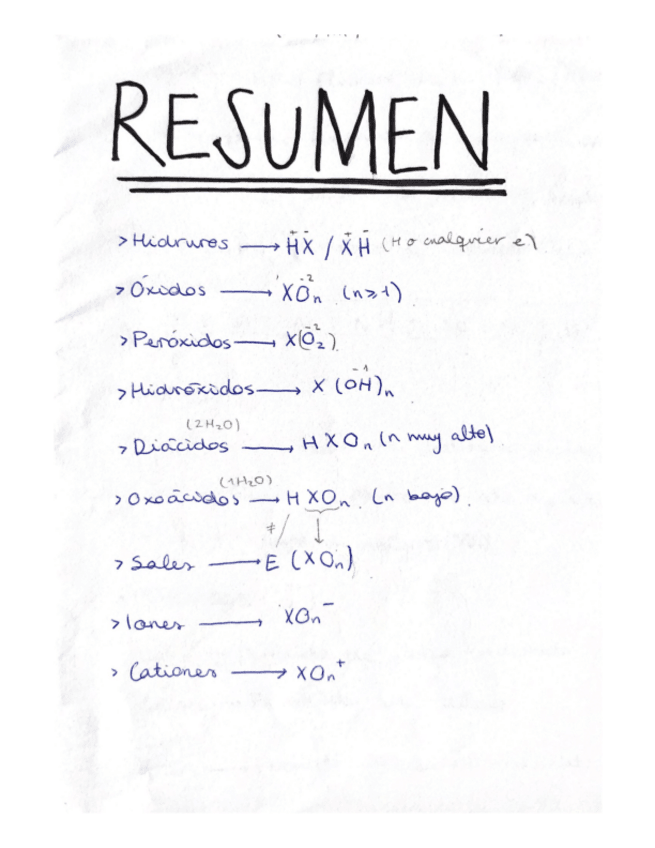 RESUMEN
> Hidruros → H⁺X⁻ / X⁺H⁻ (H o cualquier e)
> Óxidos → XOₙ⁻² (n≥1)
> Peróxidos → X(O₂⁻²)
> Hidróxidos → X (OH)ₙ⁻¹
(2H₂O)
> Diácidos → H X Oₙ (n muy alto)
(1H₂O)
> Oxoácidos → H XOₙ (n bajo).
≠ / ↓
> Sales → E (XOₙ)
> Iones → XOₙ⁻
> Cationes → XOₙ⁺